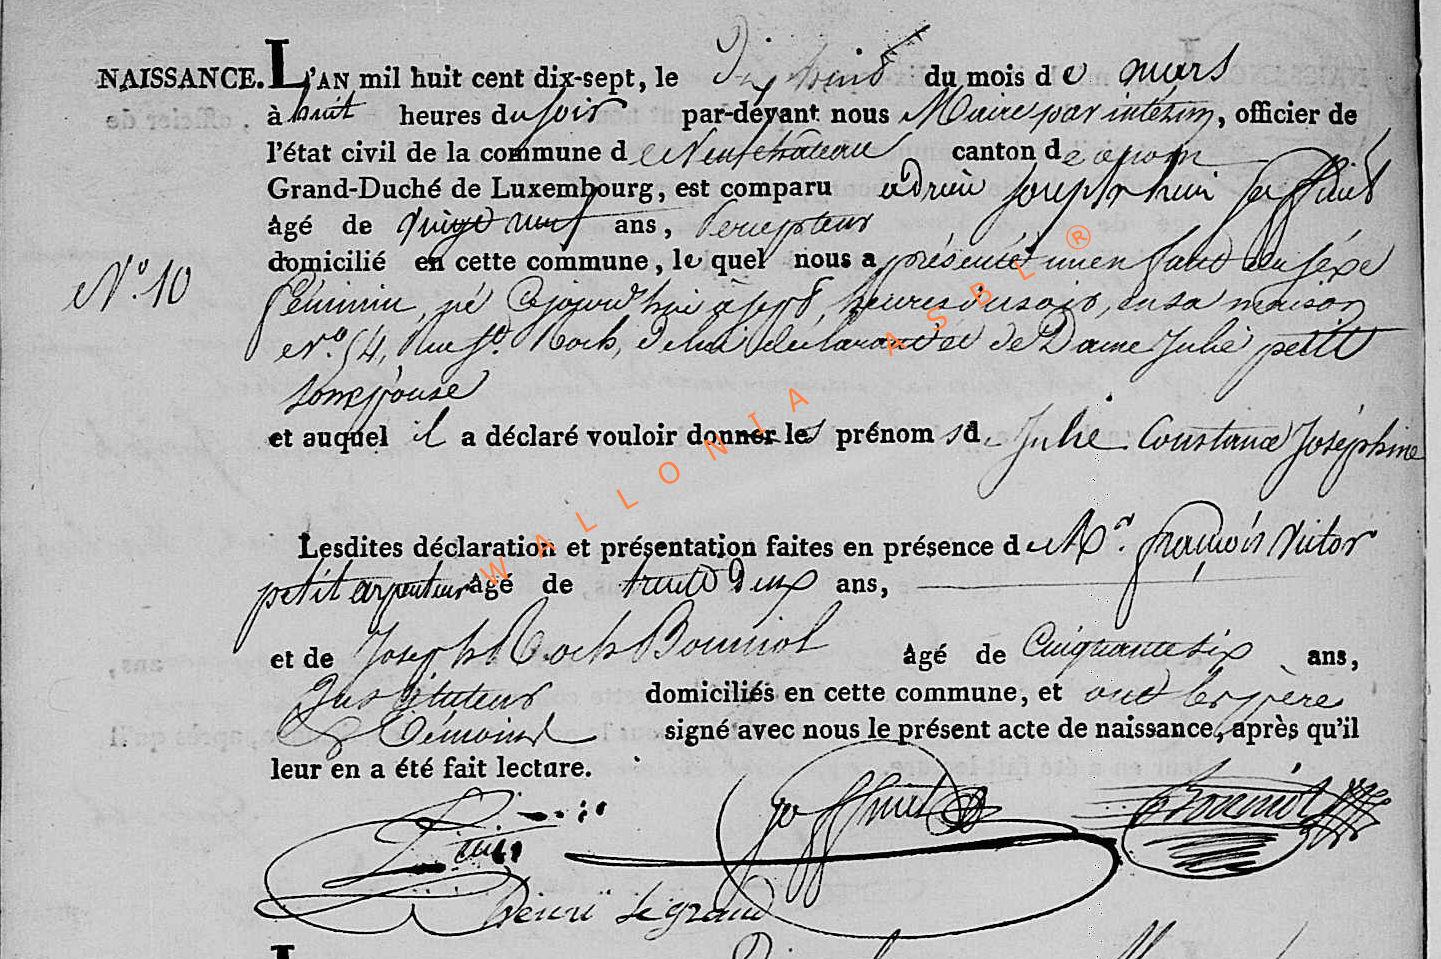 NAISSANCE. L'AN mil huit cent dix-sept, le Dix huit du mois de mars
à huit heures du soir par-devant nous Maire par intérim, officier de
l'état civil de la commune de Neufchâteau canton de
Grand-Duché de Luxembourg, est comparu adrien Joseph henri Joffiniet
âgé de vingt neuf ans, percepteur
domicilié en cette commune, le quel nous a présenté un enfant du séxe
N.o 10
féminin, né Cejourd'hui à sept heures du soir, en sa maison
N.o 54, Rue St. Roch, de lui déclarant et de Dame Julie petit
son épouse
et auquel il a déclaré vouloir donner les prénoms de Julie Constance Joséphine
Lesdites déclaration et présentation faites en présence de Mr. françois Victor
petit arpenteur âgé de trente deux ans,
et de Joseph Roch Bouniol âgé de Cinquante six ans,
Instituteur domiciliés en cette commune, et ont les père
& témoins signé avec nous le présent acte de naissance, après qu'il
leur en a été fait lecture.
Petit Joffiniet Bouniol
henri Legrand
WALLONIA ASBL ®